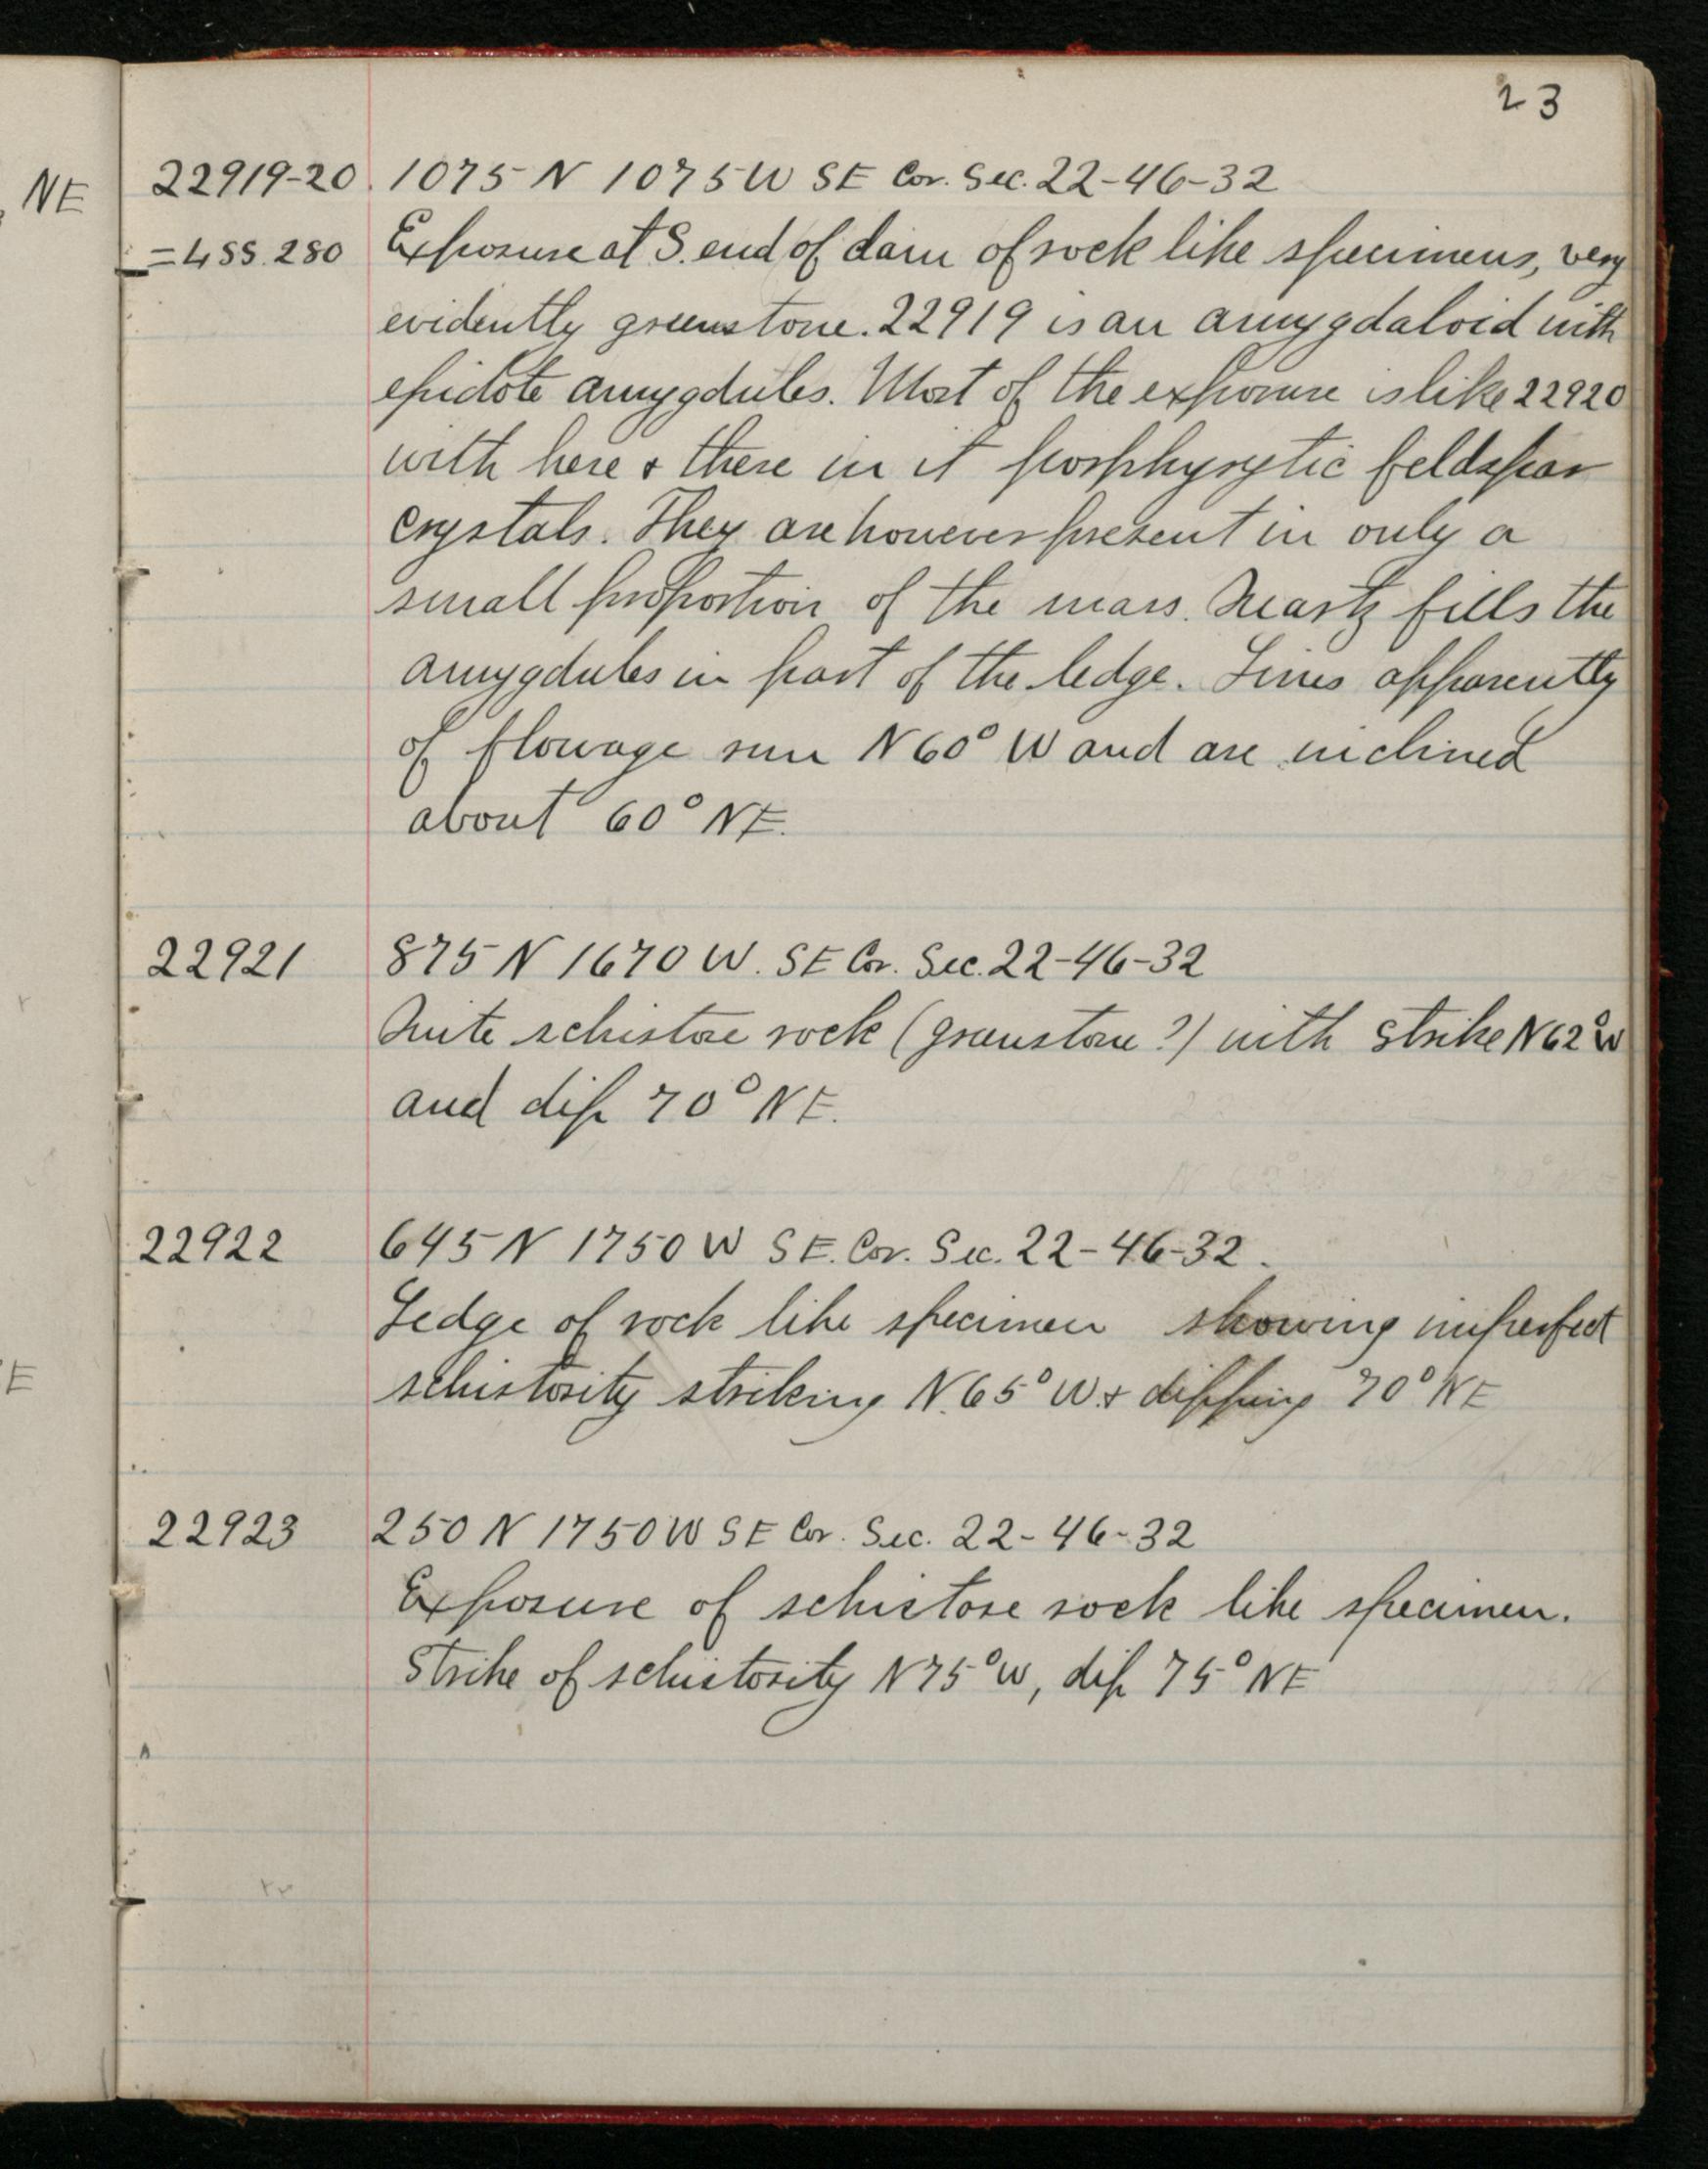 23
NE
22919-20 1075 N 1075 W SE Cor. Sec. 22-46-32
=4SS.280 Exposure at S. end of dam of rock like specimens, very
evidently greenstone. 22919 is an amygdaloid with
epidote amygdules. Most of the exposure is like 22920
with here & there in it porphyrytic feldspar
crystals. They are however present in only a
small proportion of the mass. Quartz fills the
amygdules in part of the ledge. Lines apparently
of flowage run N 60° W and are inclined
about 60° NE.
22921 875 N 1670 W. SE Cor. Sec. 22-46-32
Quite schistose rock (greenstone?) with strike N 62° W
and dip 70° NE.
22922 645 N 1750 W S E. Cor. Sec. 22-46-32.
Ledge of rock like specimen showing imperfect
E
schistosity striking N. 65° W. & dipping 70° NE
22923 250 N 1750 W SE Cor. Sec. 22-46-32
Exposure of schistose rock like specimen.
Strike of schistosity N 75° W, dip 75° NE